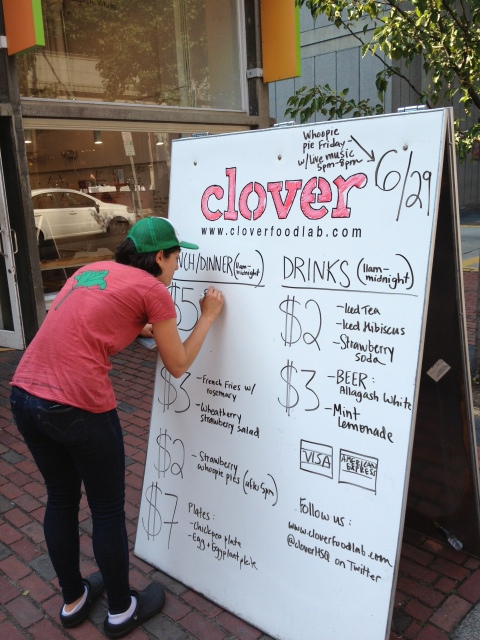 Whoopie
pie Friday
w/Live music
5pm-8pm
6/29
clover
www.cloverfoodlab.com
NCH/DINNER (11am-midnight)
$5
$3 -French Fries w/
rosemary
-Wheatberry
strawberry salad
$2 -Strawberry
whoopie pies (after 5pm)
$7 Plates:
-Chickpea plate
-Egg + Eggplant plate
DRINKS (11am-
midnight)
$2 -Iced Tea
-Iced Hibiscus
-Strawberry
soda
$3 -BEER:
Allagash White
-Mint
Lemonade
VISA
AMERICAN
EXPRESS
Follow us:
www.cloverfoodlab.com
@cloverHSQ on Twitter